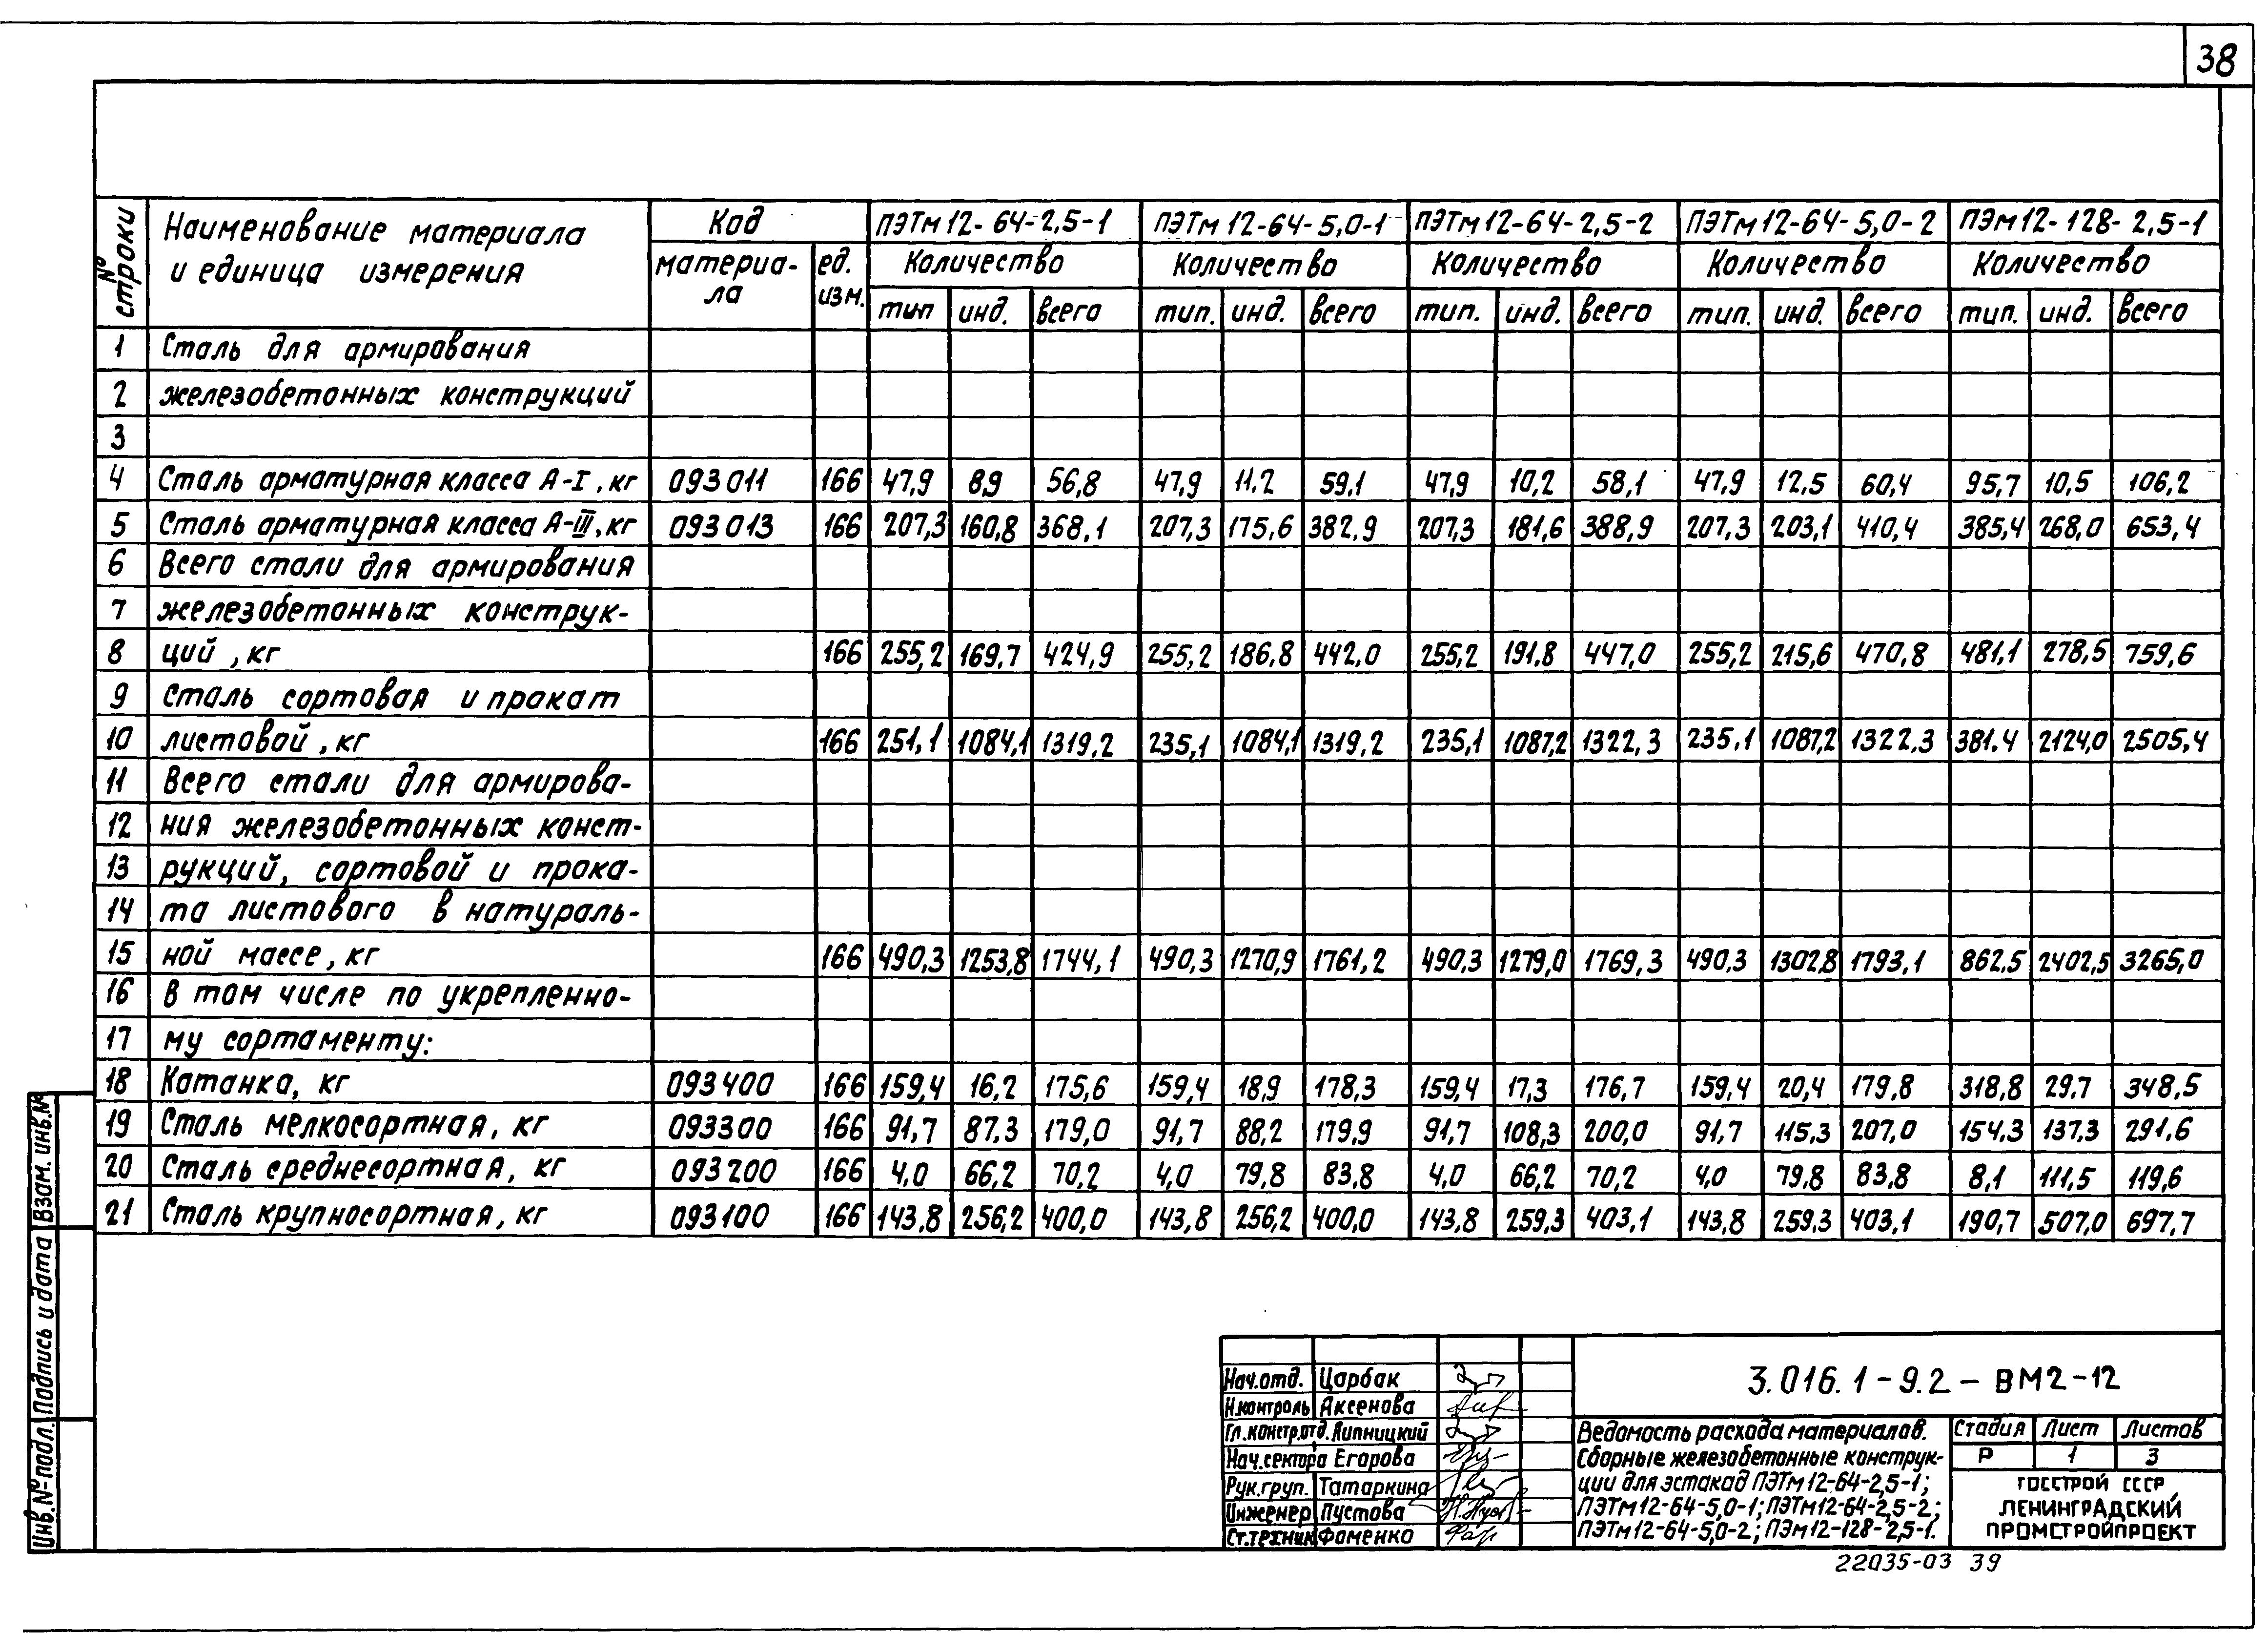 38
№ строки | Наименование материала и единица измерения | Код | ПЭТм 12-64-2,5-1 | ПЭТм 12-64-5,0-1 | ПЭТм 12-64-2,5-2 | ПЭТм 12-64-5,0-2 | ПЭм 12-128-2,5-1
материала | ед. изм. | Количество | Количество | Количество | Количество | Количество
тип | инд. | всего | тип. | инд. | всего | тип. | инд. | всего | тип. | инд. | всего | тип. | инд. | всего
1 | Сталь для армирования
2 | железобетонных конструкций
3
4 | Сталь арматурная класса А-I, кг | 093011 | 166 | 47,9 | 8,9 | 56,8 | 47,9 | 11,2 | 59,1 | 47,9 | 10,2 | 58,1 | 47,9 | 12,5 | 60,4 | 95,7 | 10,5 | 106,2
5 | Сталь арматурная класса А-III, кг | 093013 | 166 | 207,3 | 160,8 | 368,1 | 207,3 | 175,6 | 382,9 | 207,3 | 181,6 | 388,9 | 207,3 | 203,1 | 410,4 | 385,4 | 268,0 | 653,4
6 | Всего стали для армирования
7 | железобетонных конструк-
8 | ций, кг | 166 | 255,2 | 169,7 | 424,9 | 255,2 | 186,8 | 442,0 | 255,2 | 191,8 | 447,0 | 255,2 | 215,6 | 470,8 | 481,1 | 278,5 | 759,6
9 | Сталь сортовая и прокат
10 | листовой, кг | 166 | 251,1 | 1084,1 | 1319,2 | 235,1 | 1084,1 | 1319,2 | 235,1 | 1087,2 | 1322,3 | 235,1 | 1087,2 | 1322,3 | 381,4 | 2124,0 | 2505,4
11 | Всего стали для армирова-
12 | ния железобетонных конст-
13 | рукций, сортовой и прока-
14 | та листового в натураль-
15 | ной массе, кг | 166 | 490,3 | 1253,8 | 1744,1 | 490,3 | 1270,9 | 1761,2 | 490,3 | 1279,0 | 1769,3 | 490,3 | 1302,8 | 1793,1 | 862,5 | 2402,5 | 3265,0
16 | В том числе по укрепленно-
17 | му сортаменту:
18 | Катанка, кг | 093400 | 166 | 159,4 | 16,2 | 175,6 | 159,4 | 18,9 | 178,3 | 159,4 | 17,3 | 176,7 | 159,4 | 20,4 | 179,8 | 318,8 | 29,7 | 348,5
19 | Сталь мелкосортная, кг | 093300 | 166 | 91,7 | 87,3 | 179,0 | 91,7 | 88,2 | 179,9 | 91,7 | 108,3 | 200,0 | 91,7 | 115,3 | 207,0 | 154,3 | 137,3 | 291,6
20 | Сталь среднесортная, кг | 093200 | 166 | 4,0 | 66,2 | 70,2 | 4,0 | 79,8 | 83,8 | 4,0 | 66,2 | 70,2 | 4,0 | 79,8 | 83,8 | 8,1 | 111,5 | 119,6
21 | Сталь крупносортная, кг | 093100 | 166 | 143,8 | 256,2 | 400,0 | 143,8 | 256,2 | 400,0 | 143,8 | 259,3 | 403,1 | 143,8 | 259,3 | 403,1 | 190,7 | 507,0 | 697,7
Инв. № подл. | Подпись и дата | Взам. инв. №
Нач.отд. | Царбак
Н.контроль | Аксенова
Гл.констр.отд. Липницкий
Нач.сектора Егорова
Рук.груп. | Татаркина
Инженер | Пустова
Ст.техник | Фоменко
3.016.1-9.2-ВМ2-12
Ведомость расхода материалов.
Сборные железобетонные конструк-
ции для эстакад ПЭТм 12-64-2,5-1;
ПЭТм12-64-5,0-1; ПЭТм12-64-2,5-2;
ПЭТм12-64-5,0-2; ПЭм12-128-2,5-1.
Стадия | Лист | Листов
Р | 1 | 3
ГОССТРОЙ СССР
ЛЕНИНГРАДСКИЙ
ПРОМСТРОЙПРОЕКТ
22035-03 39